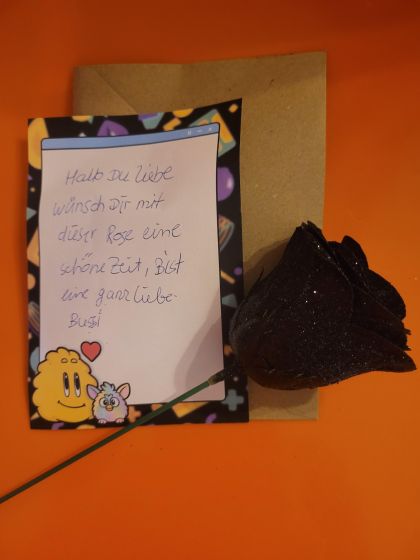 Hallo Du liebe
wünsch Dir mit
dieser Rose eine
schöne Zeit, Bist
eine ganz liebe.
Bussi